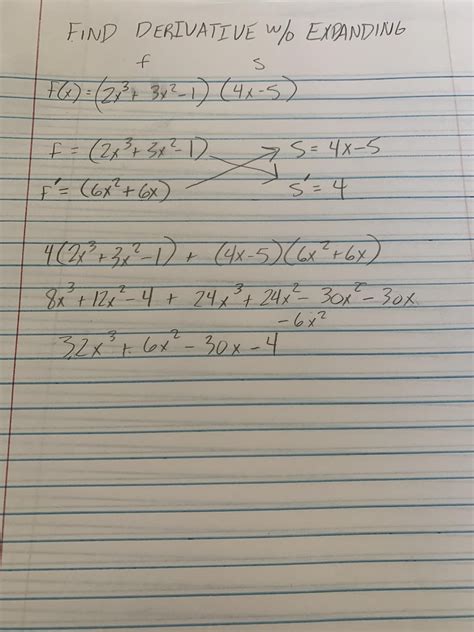 FIND DERIVATIVE w/o EXPANDING
f s
f(x)=(2x³+3x²-1)(4x-5)
f = (2x³+3x²-1) s = 4x-5
f' = (6x²+6x) s' = 4
4(2x³+3x²-1) + (4x-5)(6x²+6x)
8x³+12x²-4 + 24x³+24x²-30x²-30x
-6x²
32x³+6x²-30x-4